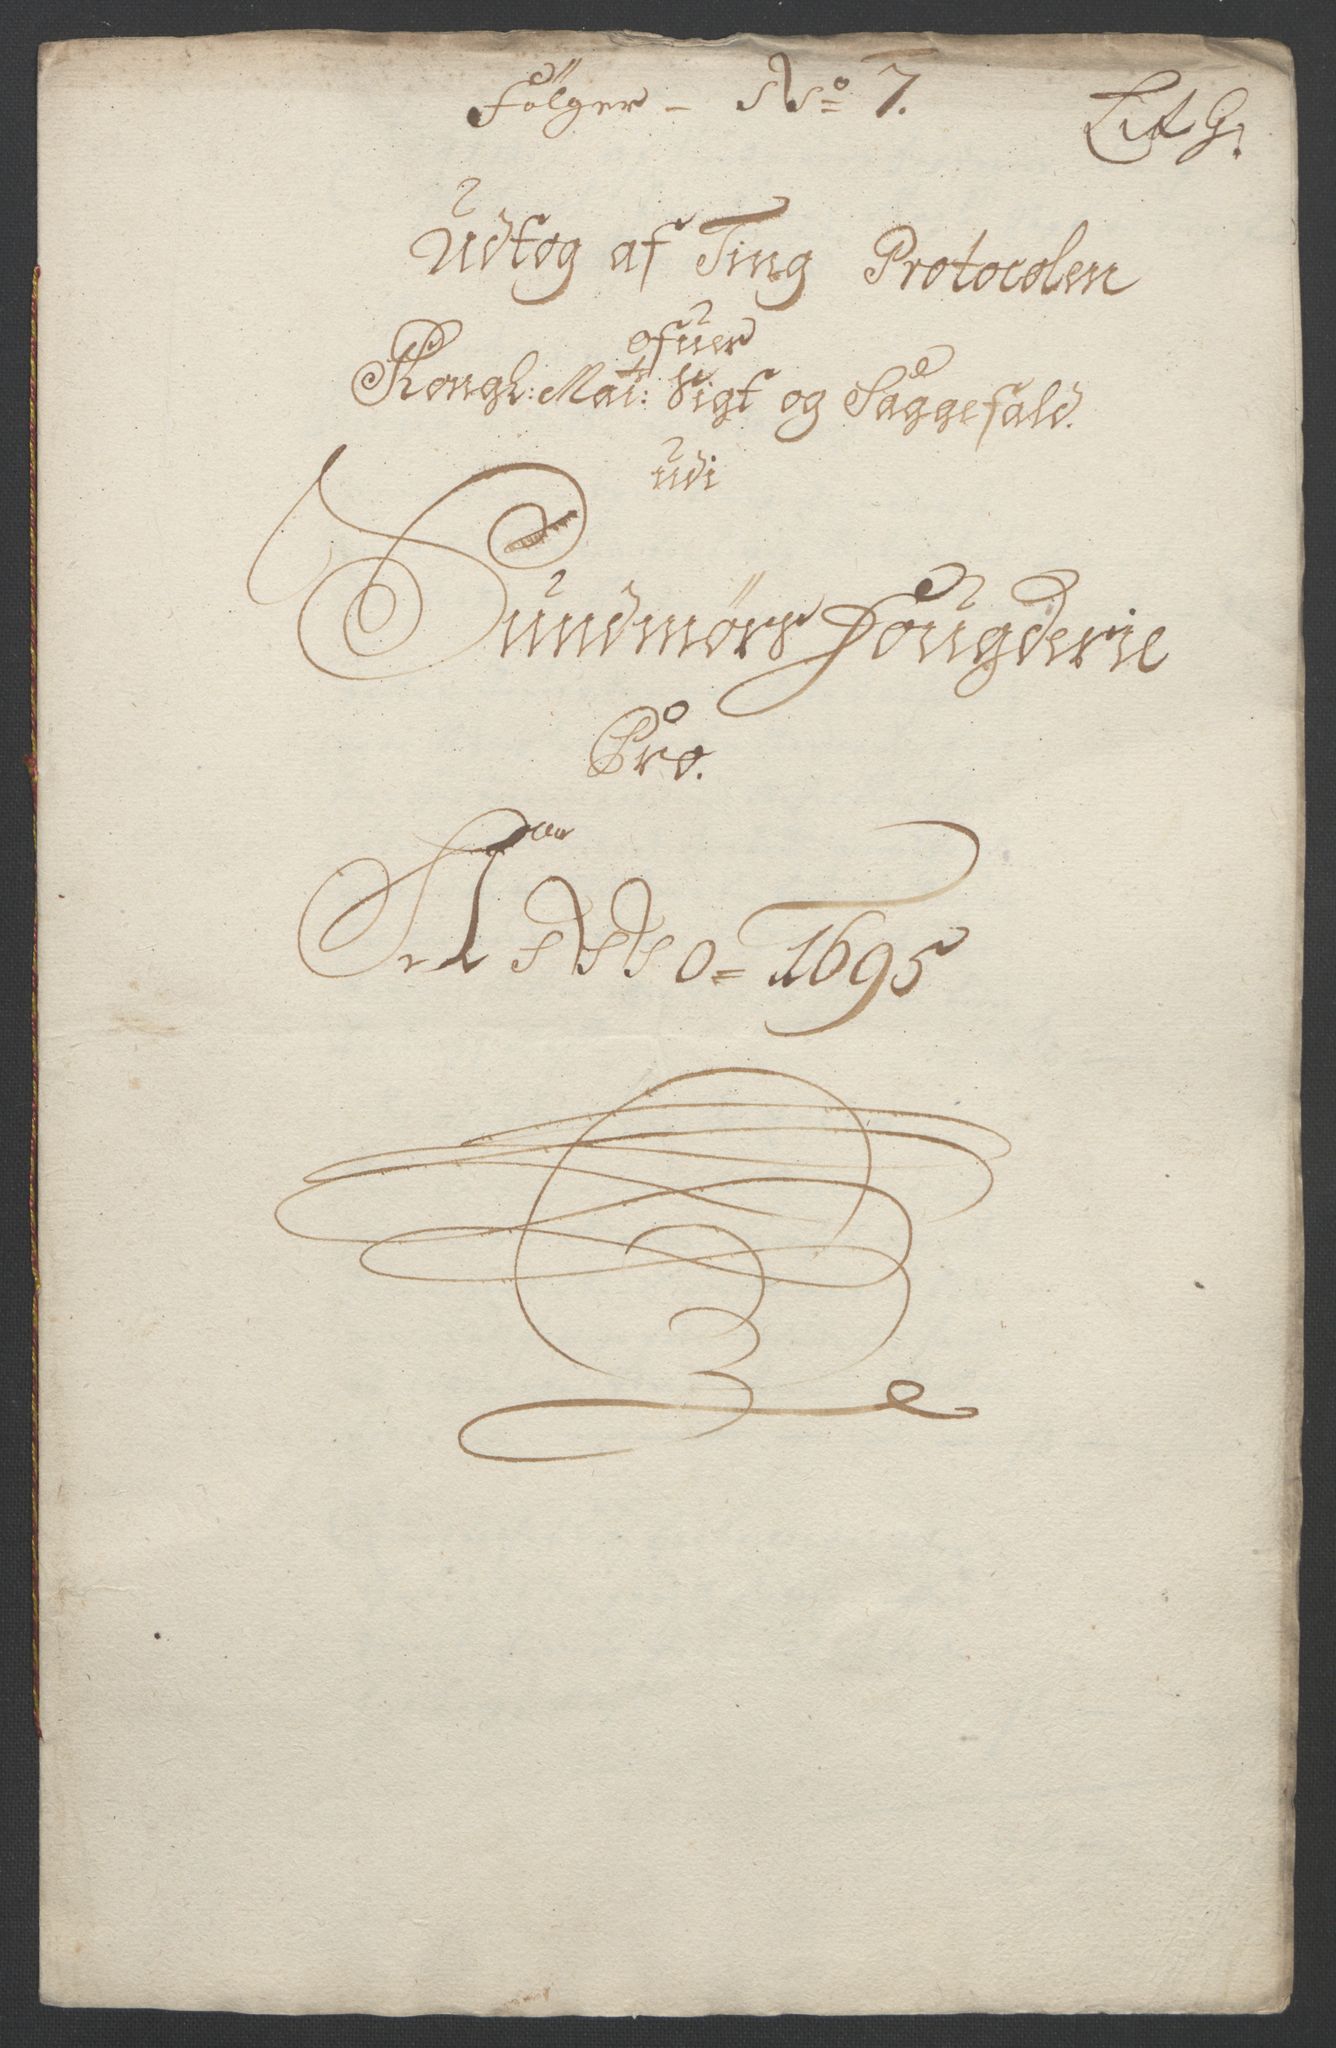 Følger - No 7.
Lit G.
Udtog af Ting Protocolen
ofuer
Kongl: Mai: Sigt og Saggefald.
udi
Sundmørs Fougderie
Pro.
Anno 1695